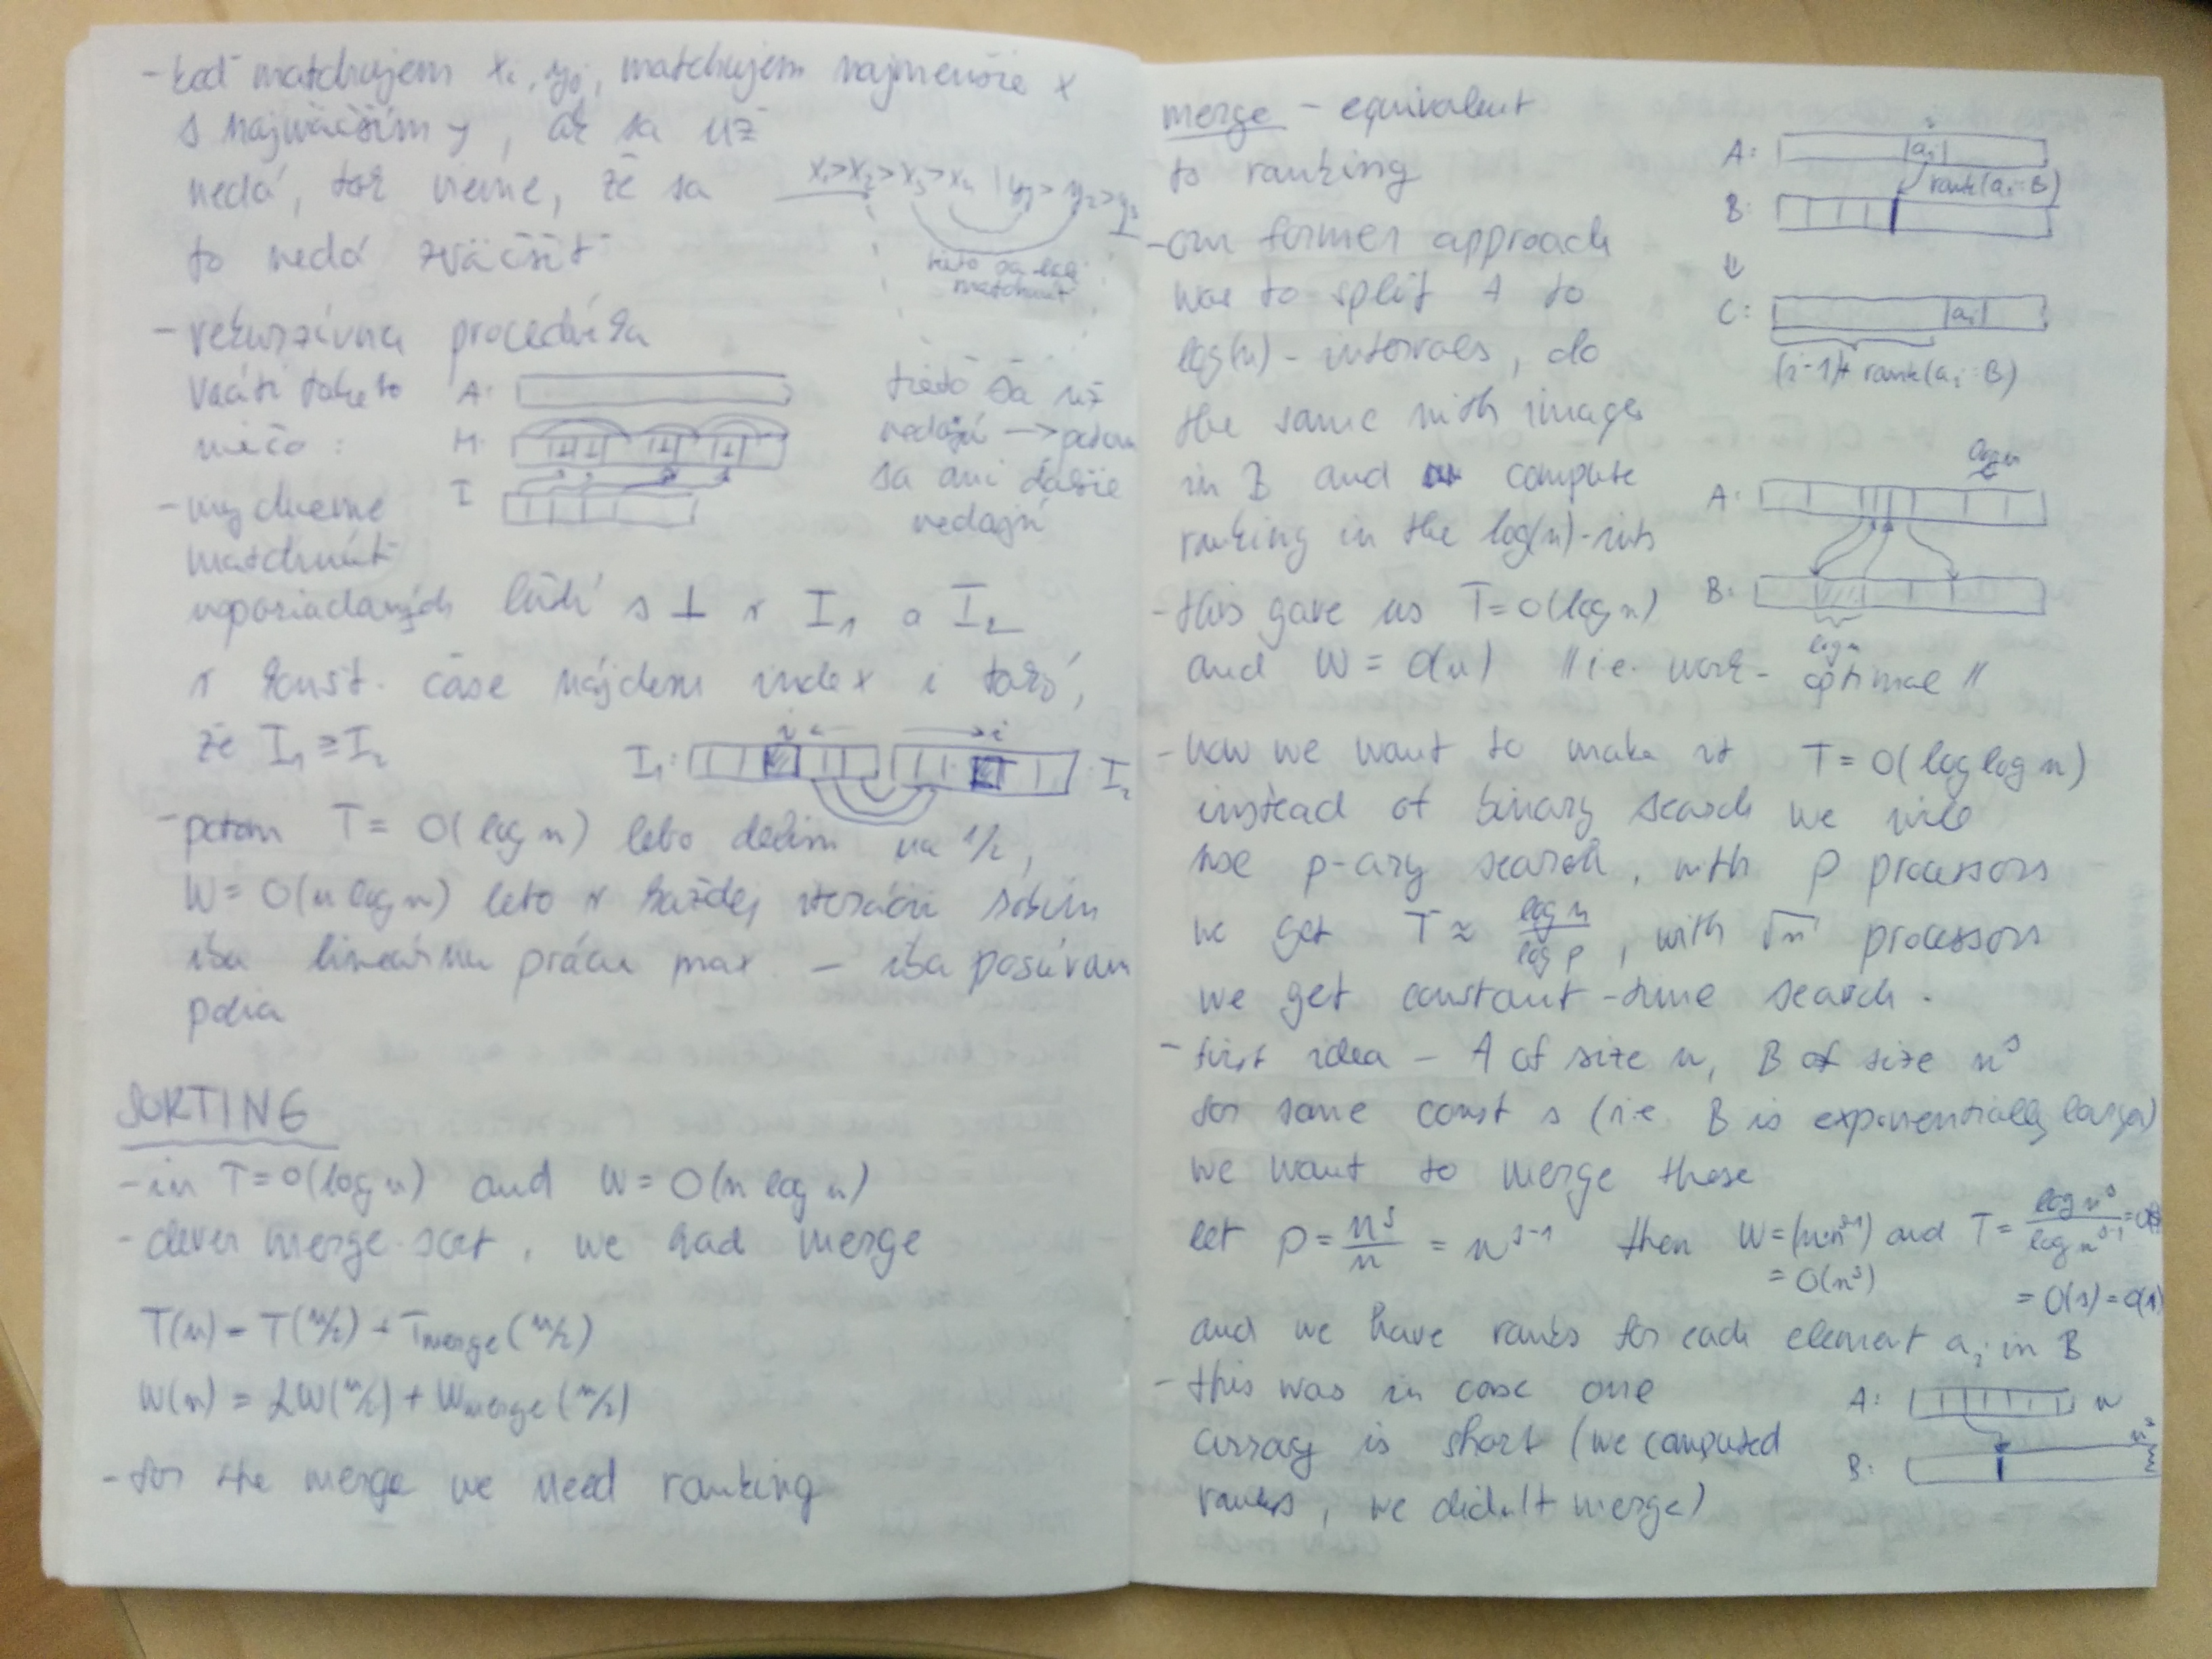 - keď matchujem xᵢ, yⱼ, matchujem najmenšie x
s najväčším y, ak sa už
nedá, tak vieme, že sa
to nedá zväčšiť
x₁>x₂>x₃>x₄ | y₁>y₂>y₃
tieto sa
matchnúť
- rekurzívna procedúra
vráti takéto
niečo:
A:
M:
I
tieto sa už
nedajú → potom
sa ani ďalšie
nedajú
- my chceme
matchnúť
ľudí s ⊥ v I₁ a I₂
v konšt. čase nájdem index i taký,
že I₁ ≅ I₂
I₁: i ← → i I₂
- potom T = O(log n) lebo delím na 1/2,
W = O(n log n) lebo v každej iterácii robím
iba lineárnu prácu max - iba posúvam
polia
SORTING
- in T = O(log n) and W = O(n log n)
- clever merge sort, we had merge
T(n) = T(n/2) + Tmerge(n/2)
W(n) = 2W(n/2) + Wmerge(n/2)
- for the merge we need ranking
merge - equivalent
to ranking
A: |aᵢ|
rank(aᵢ:B)
B:
⇓
C: |aᵢ|
(i-1)+rank(aᵢ:B)
- our former approach
was to split A to
log(n)-intervals, do
the same with images
in B and compute
ranking in the log(n)-ints
A: log n
B:
log n
- this gave us T = O(log n)
and W = O(n) // i.e. work-optimal //
- now we want to make it T = O(log log n)
instead of binary search we will
use p-ary search, with p processors
we get T ≈ log n / log p, with √n processors
we get constant-time search.
- first idea - A of size n, B of size nˢ
for some const s (i.e. B is exponentially larger)
we want to merge these
let p = nˢ/n = nˢ⁻¹ then W = (n·nˢ⁻¹) and T = log nˢ / log nˢ⁻¹ =
= O(nˢ)
= O(s) = O(1)
and we have ranks for each element aᵢ in B
- this was in case one
array is short (we computed
ranks, we didn't merge)
A: n
B: nˢ